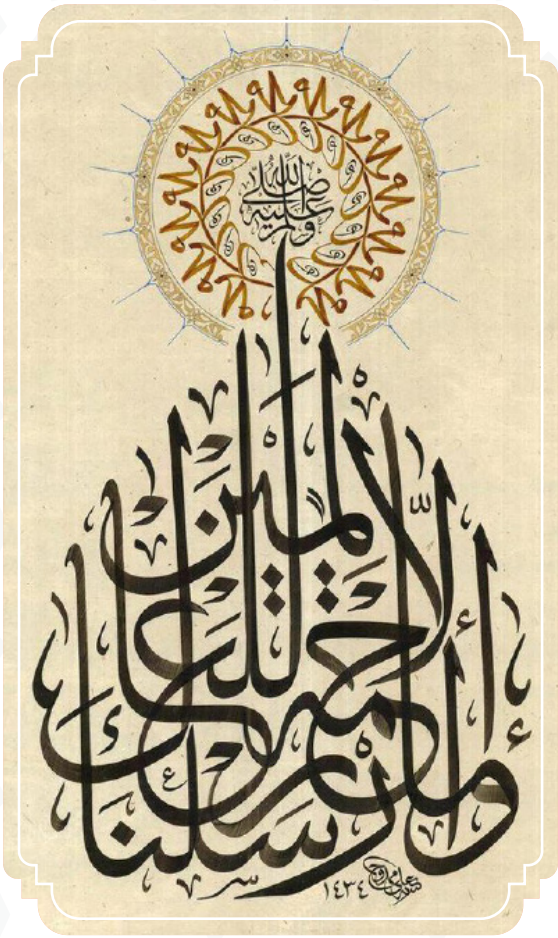 صلى الله عليه وسلم
وما أرسلناك إلا رحمة للعالمين
١٤٣٤